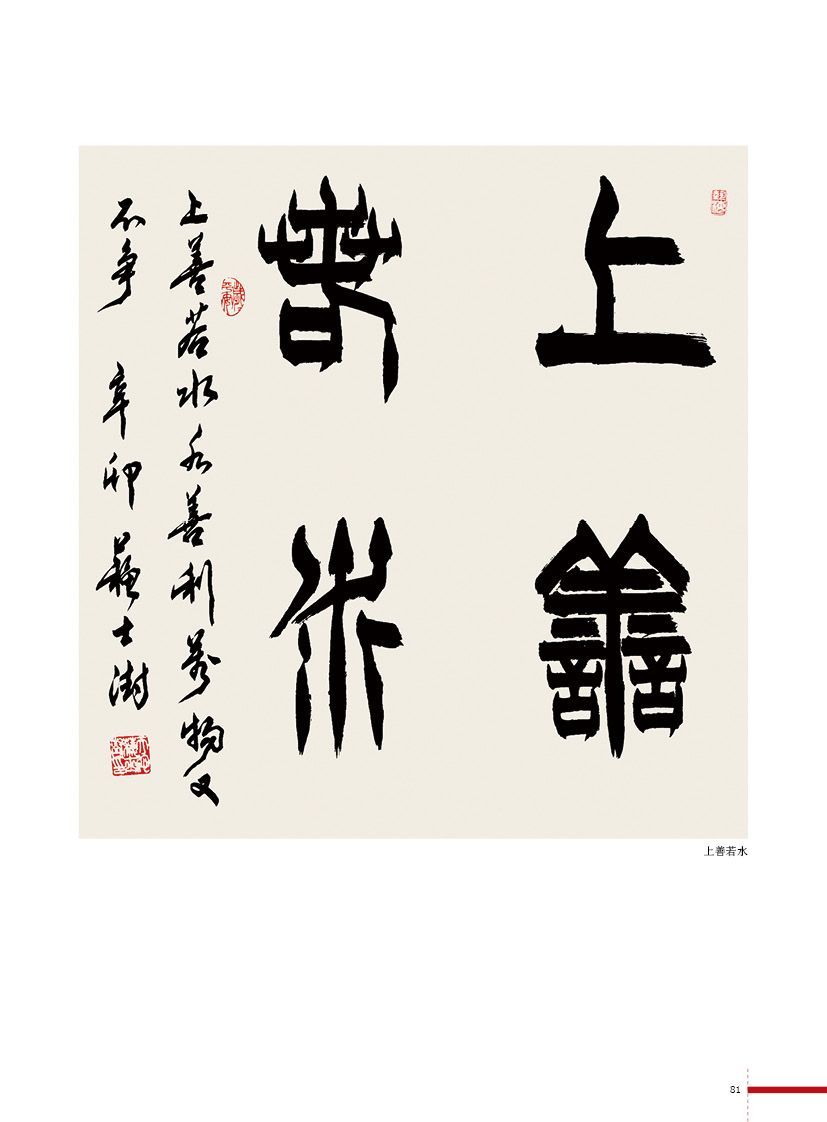 上善
若水
上善若水水善利万物又
不争 辛卯 苏士澍
上善若水
81